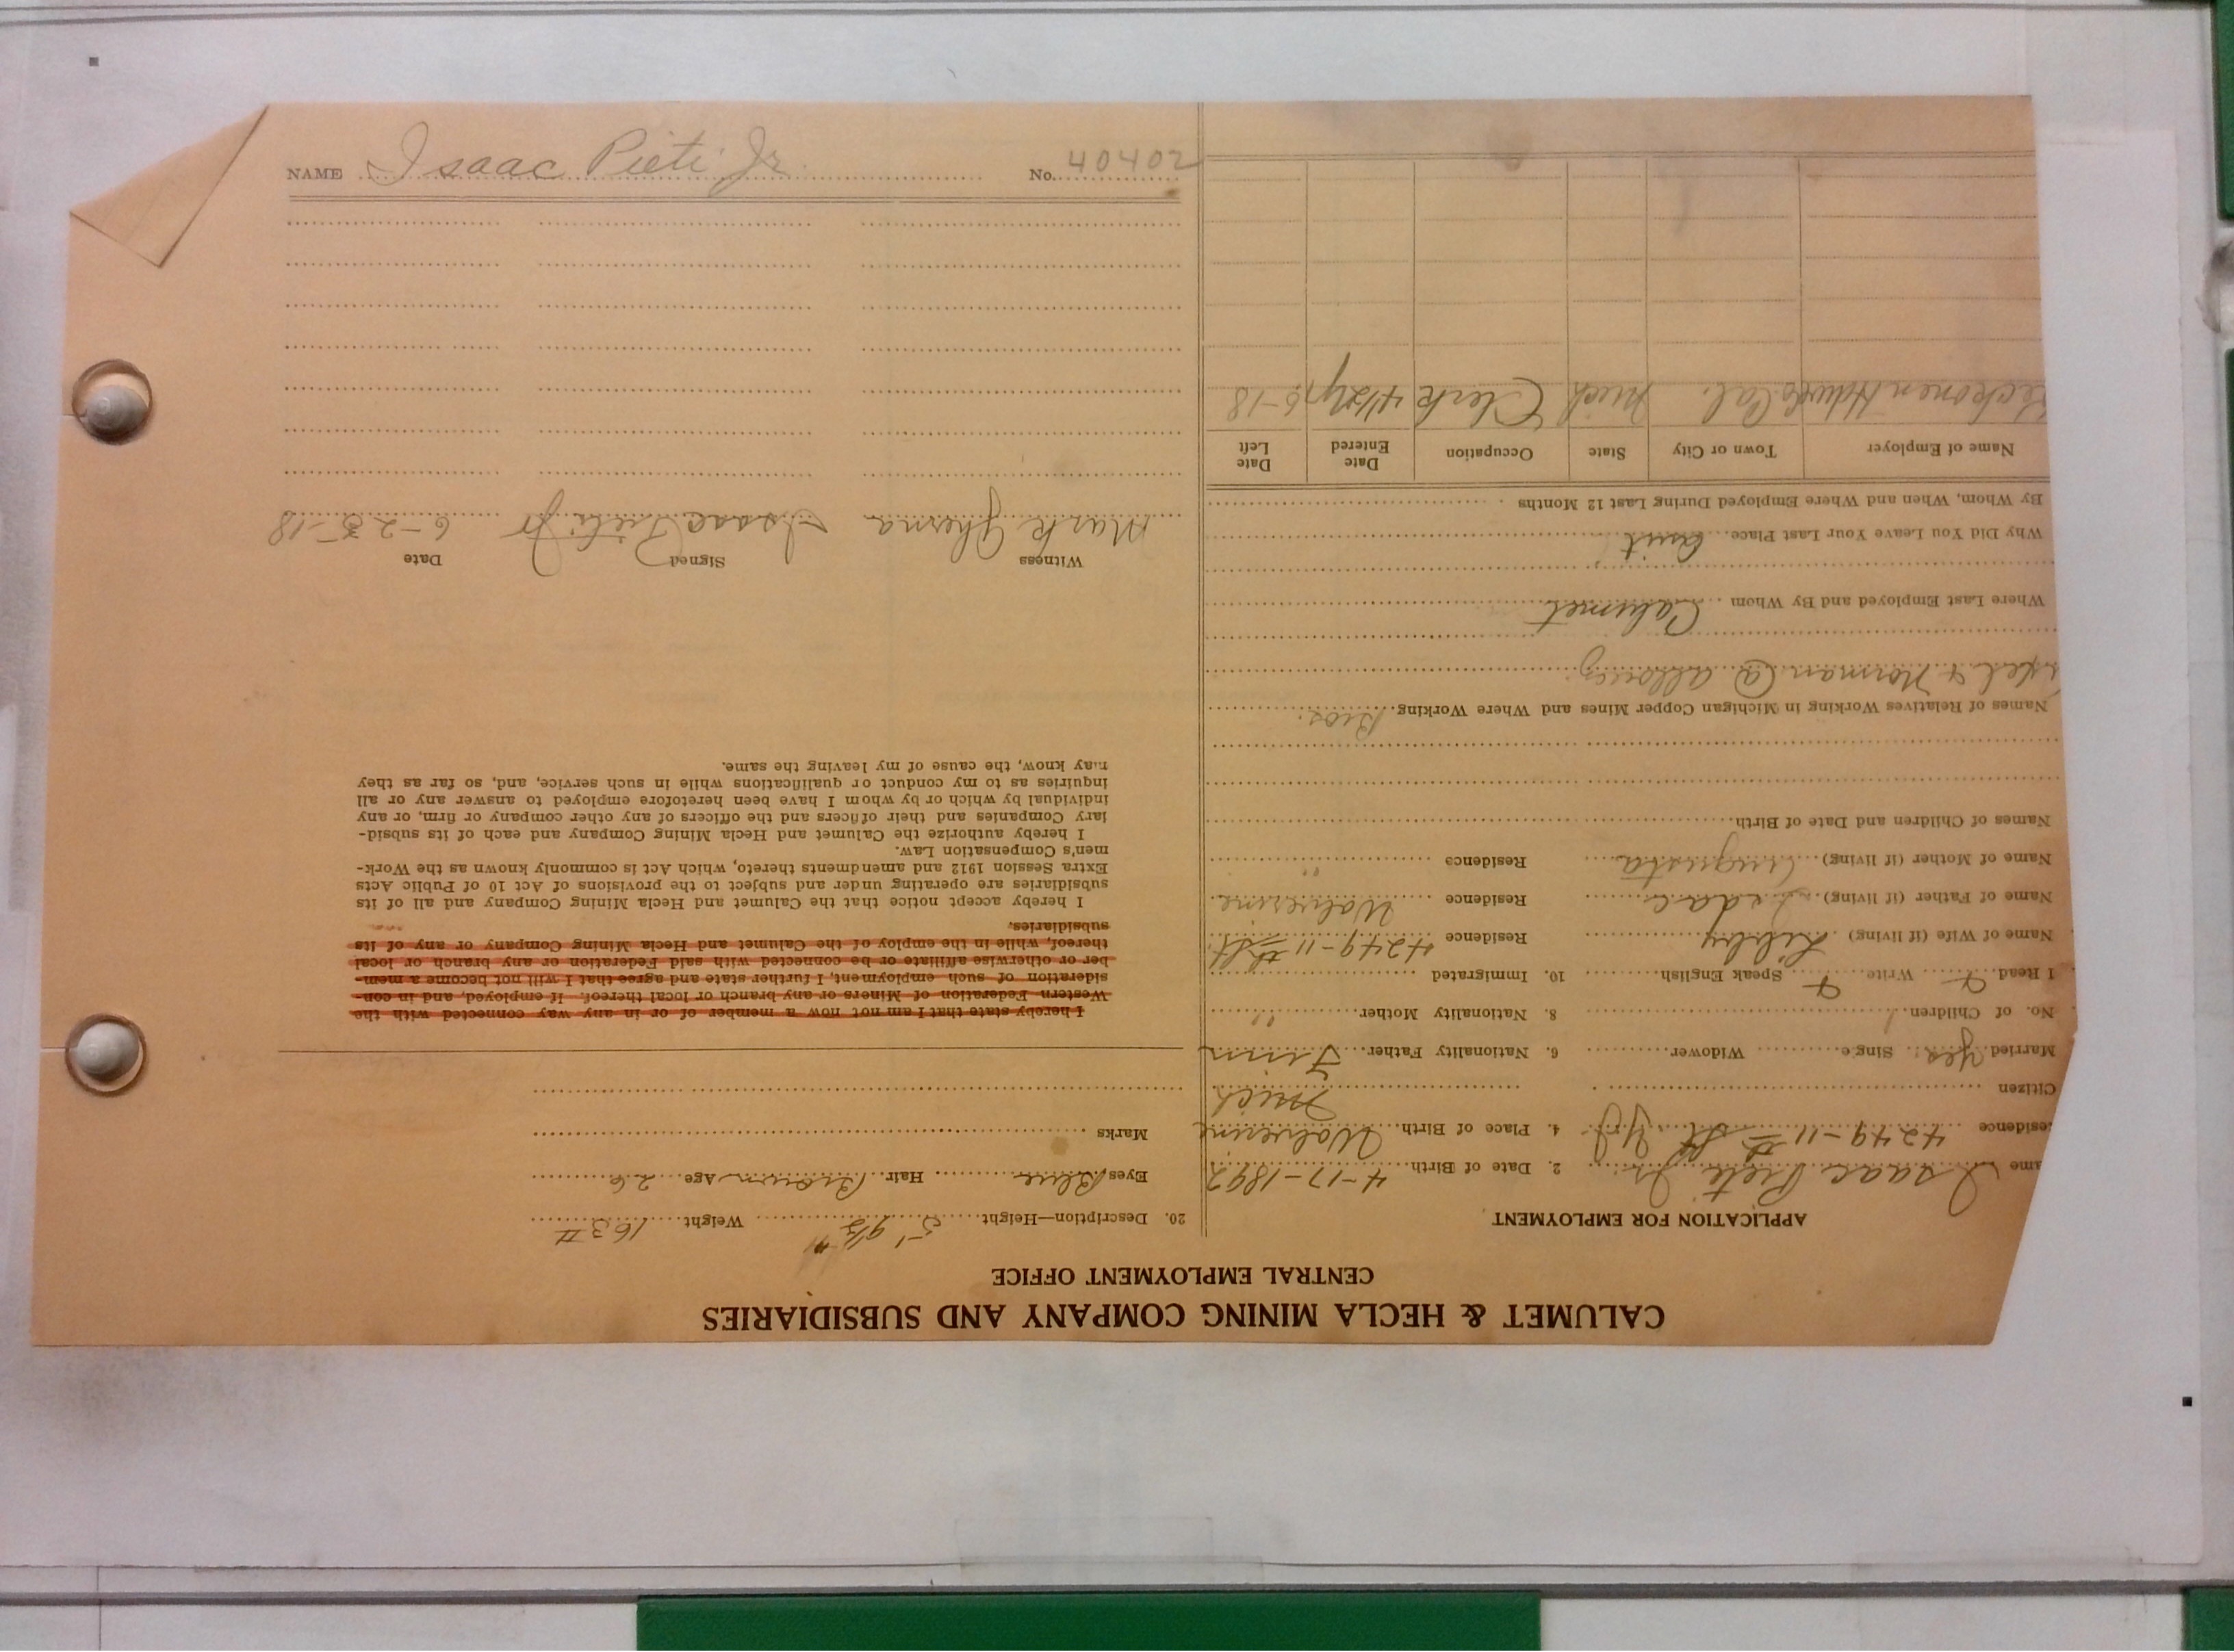 NAME Isaac Pieti Jr. No. 40402
CALUMET & HECLA MINING COMPANY AND SUBSIDIARIES
CENTRAL EMPLOYMENT OFFICE
APPLICATION FOR EMPLOYMENT
ame Isaac Pieti Jr. 2. Date of Birth 4-17-1892
esidence 4249-11th St 4. Place of Birth Wolverine
Mich
Citizen
Married Yes Single Widower 6. Nationality Father Finn
No. of Children 1 8. Nationality Mother "
I Read Write Speak English 10. Immigrated
Name of Wife (if living) Libby Residence 4249-11th St.
Name of Father (if living) Isaac Residence Wolverine
Name of Mother (if living) Augusta Residence "
Names of Children and Date of Birth
Names of Relatives Working in Michigan Copper Mines and Where Working Bros.
& Norman @ Allouez
Where Last Employed and By Whom Calumet
Why Did You Leave Your Last Place Quit
By Whom, When and Where Employed During Last 12 Months
Name of Employer Town or City State Occupation Date Entered Date Left
Keckonen Hdwe Co. Cal. Mich Clerk 4½ yr 6-18
20. Description—Height 5' 9½" Weight 163 #
Eyes Blue Hair Brown Age 26
Marks
I hereby state that I am not now a member of or in any way connected with the
Western Federation of Miners or any branch or local thereof. If employed, and in con-
sideration of such employment, I further state and agree that I will not become a mem-
ber or otherwise affiliate or be connected with said Federation or any branch or local
thereof, while in the employ of the Calumet and Hecla Mining Company or any of its
subsidiaries.
I hereby accept notice that the Calumet and Hecla Mining Company and all of its
subsidiaries are operating under and subject to the provisions of Act 10 of Public Acts
Extra Session 1912 and amendments thereto, which Act is commonly known as the Work-
men's Compensation Law.
I hereby authorize the Calumet and Hecla Mining Company and each of its subsid-
iary Companies and their officers and the officers of any other company or firm, or any
individual by which or by whom I have been heretofore employed to answer any or all
inquiries as to my conduct or qualifications while in such service, and, so far as they
may know, the cause of my leaving the same.
Witness Signed Date
Mark Gherna Isaac Pieti Jr 6-25-18